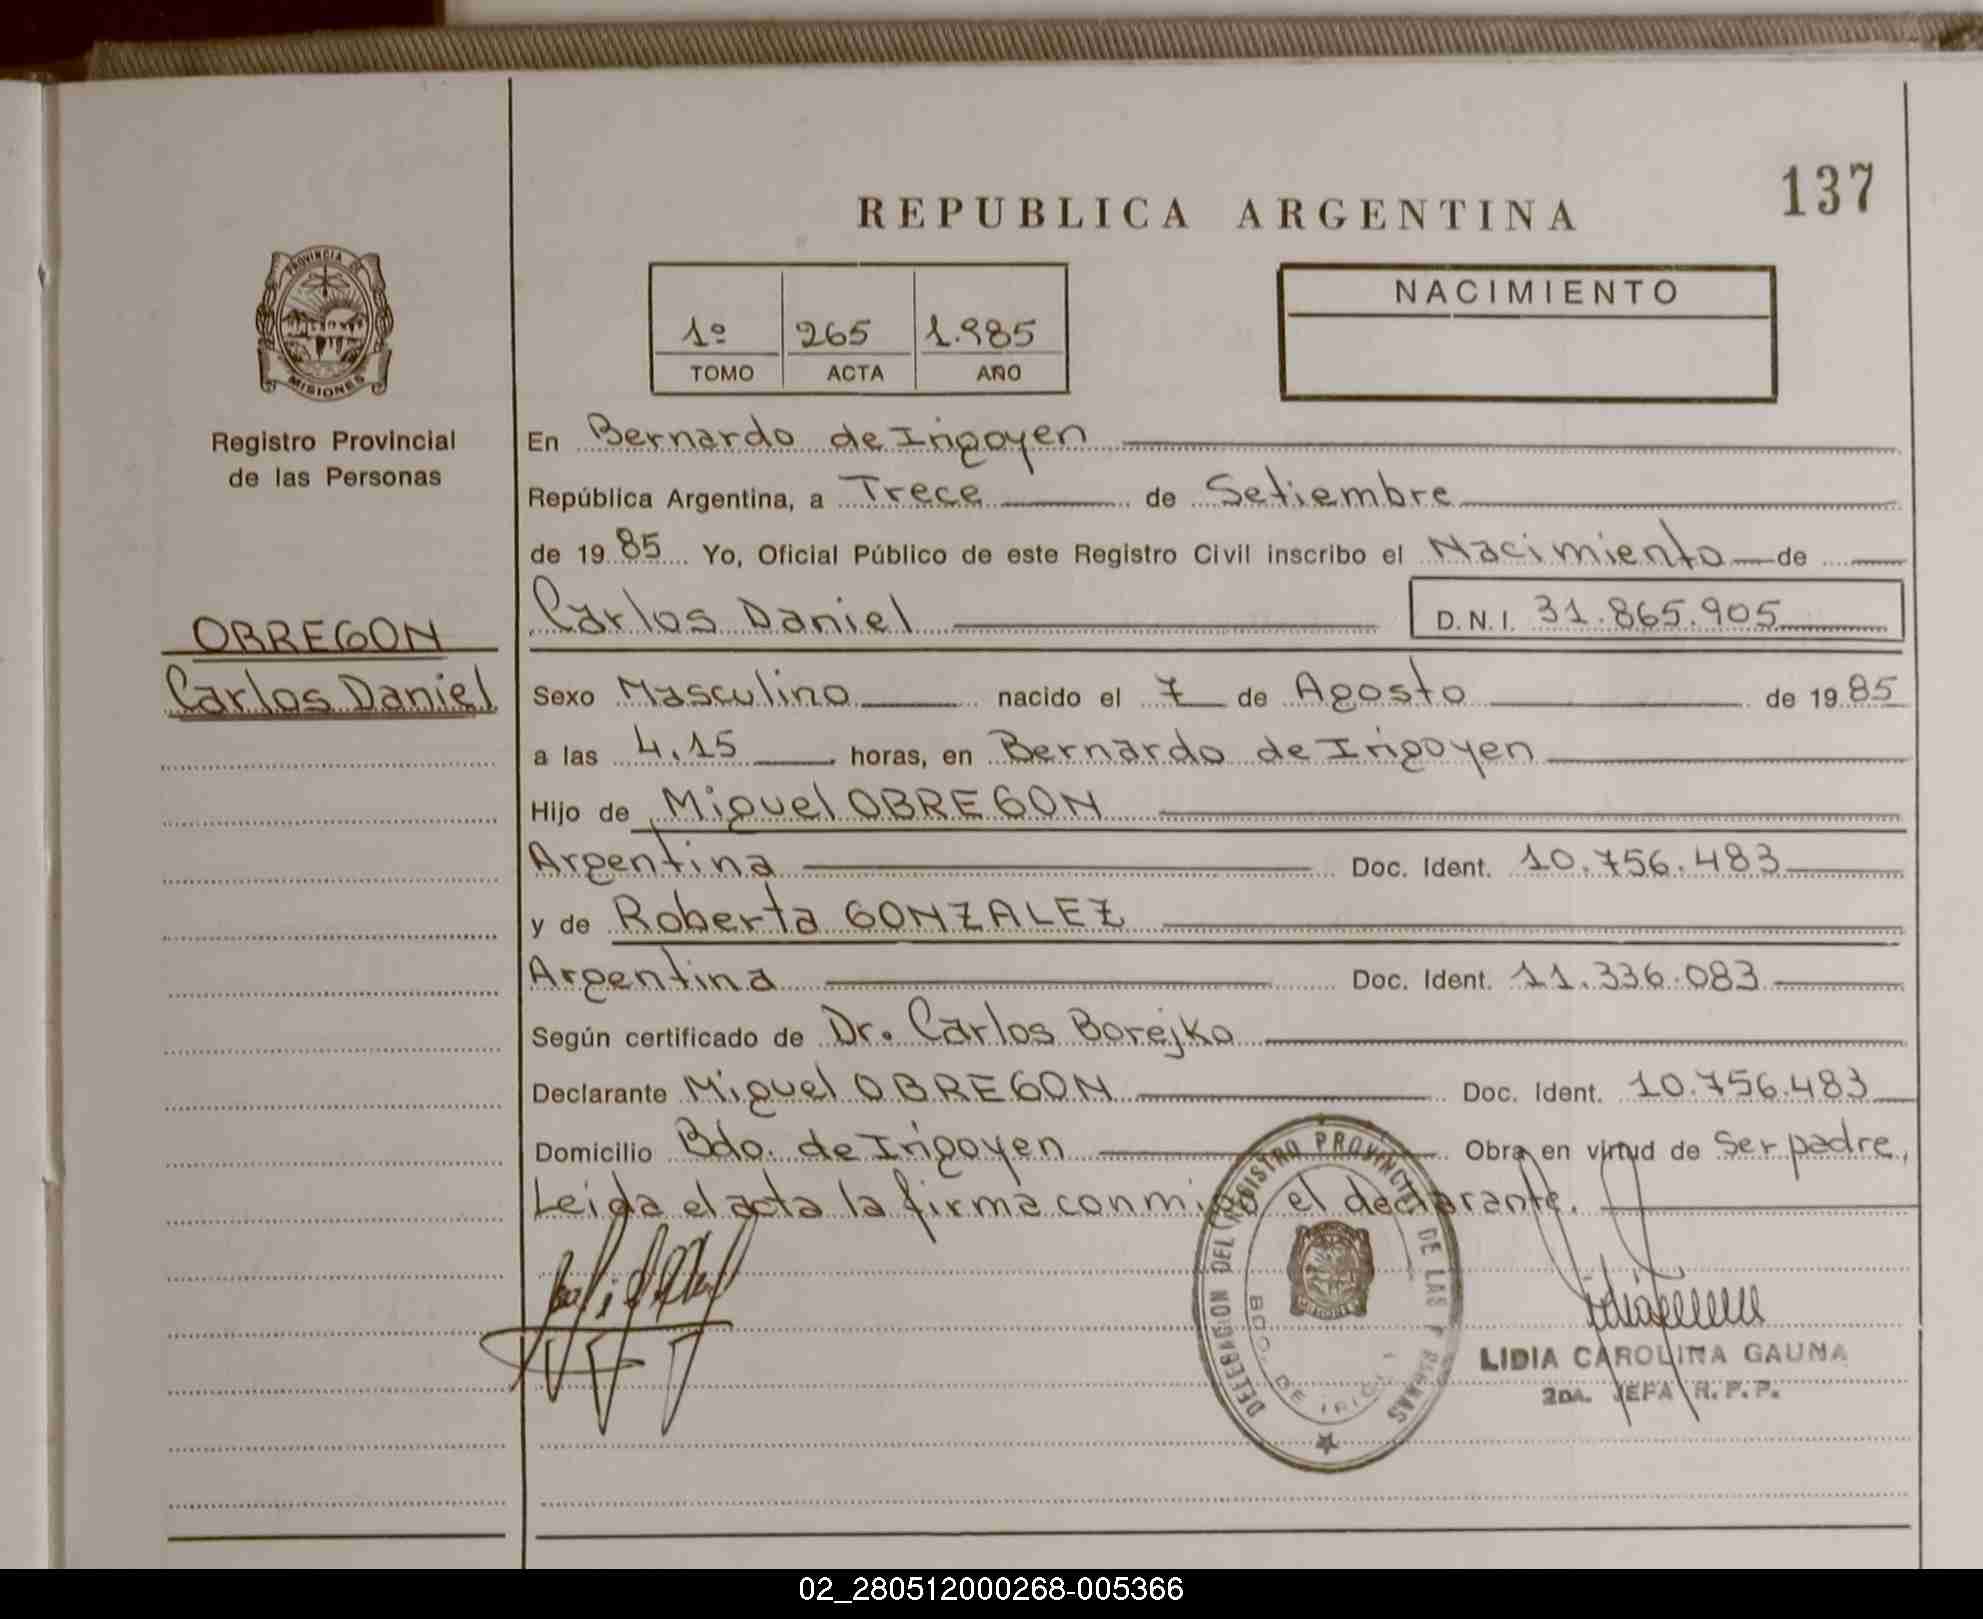 137
REPUBLICA ARGENTINA
PROVINCIA DE
MISIONES
Registro Provincial
de las Personas
1º 265 1.985
TOMO ACTA AÑO
NACIMIENTO
En Bernardo de Irigoyen
República Argentina, a Trece de Setiembre
de 1985 Yo, Oficial Público de este Registro Civil inscribo el Nacimiento de
Carlos Daniel D.N.I. 31.865.905
OBREGON
Carlos Daniel
Sexo Masculino nacido el 7 de Agosto de 1985
a las 4.15 horas, en Bernardo de Irigoyen
Hijo de Miguel OBREGON
Argentina Doc. Ident. 10.756.483
y de Roberta GONZALEZ
Argentina Doc. Ident. 11.336.083
Según certificado de Dr. Carlos Borejko
Declarante Miguel OBREGON Doc. Ident. 10.756.483
Domicilio Bdo. de Irigoyen Obra en virtud de Ser padre,
Leida el acta la firma conmigo el declarante.
DELEGACION DEL REGISTRO PROVINCIAL DE LAS PERSONAS
BDO. DE
MISIONES
LIDIA CAROLINA GAUNA
2DA. JEFA R.P.P.
02_280512000268-005366